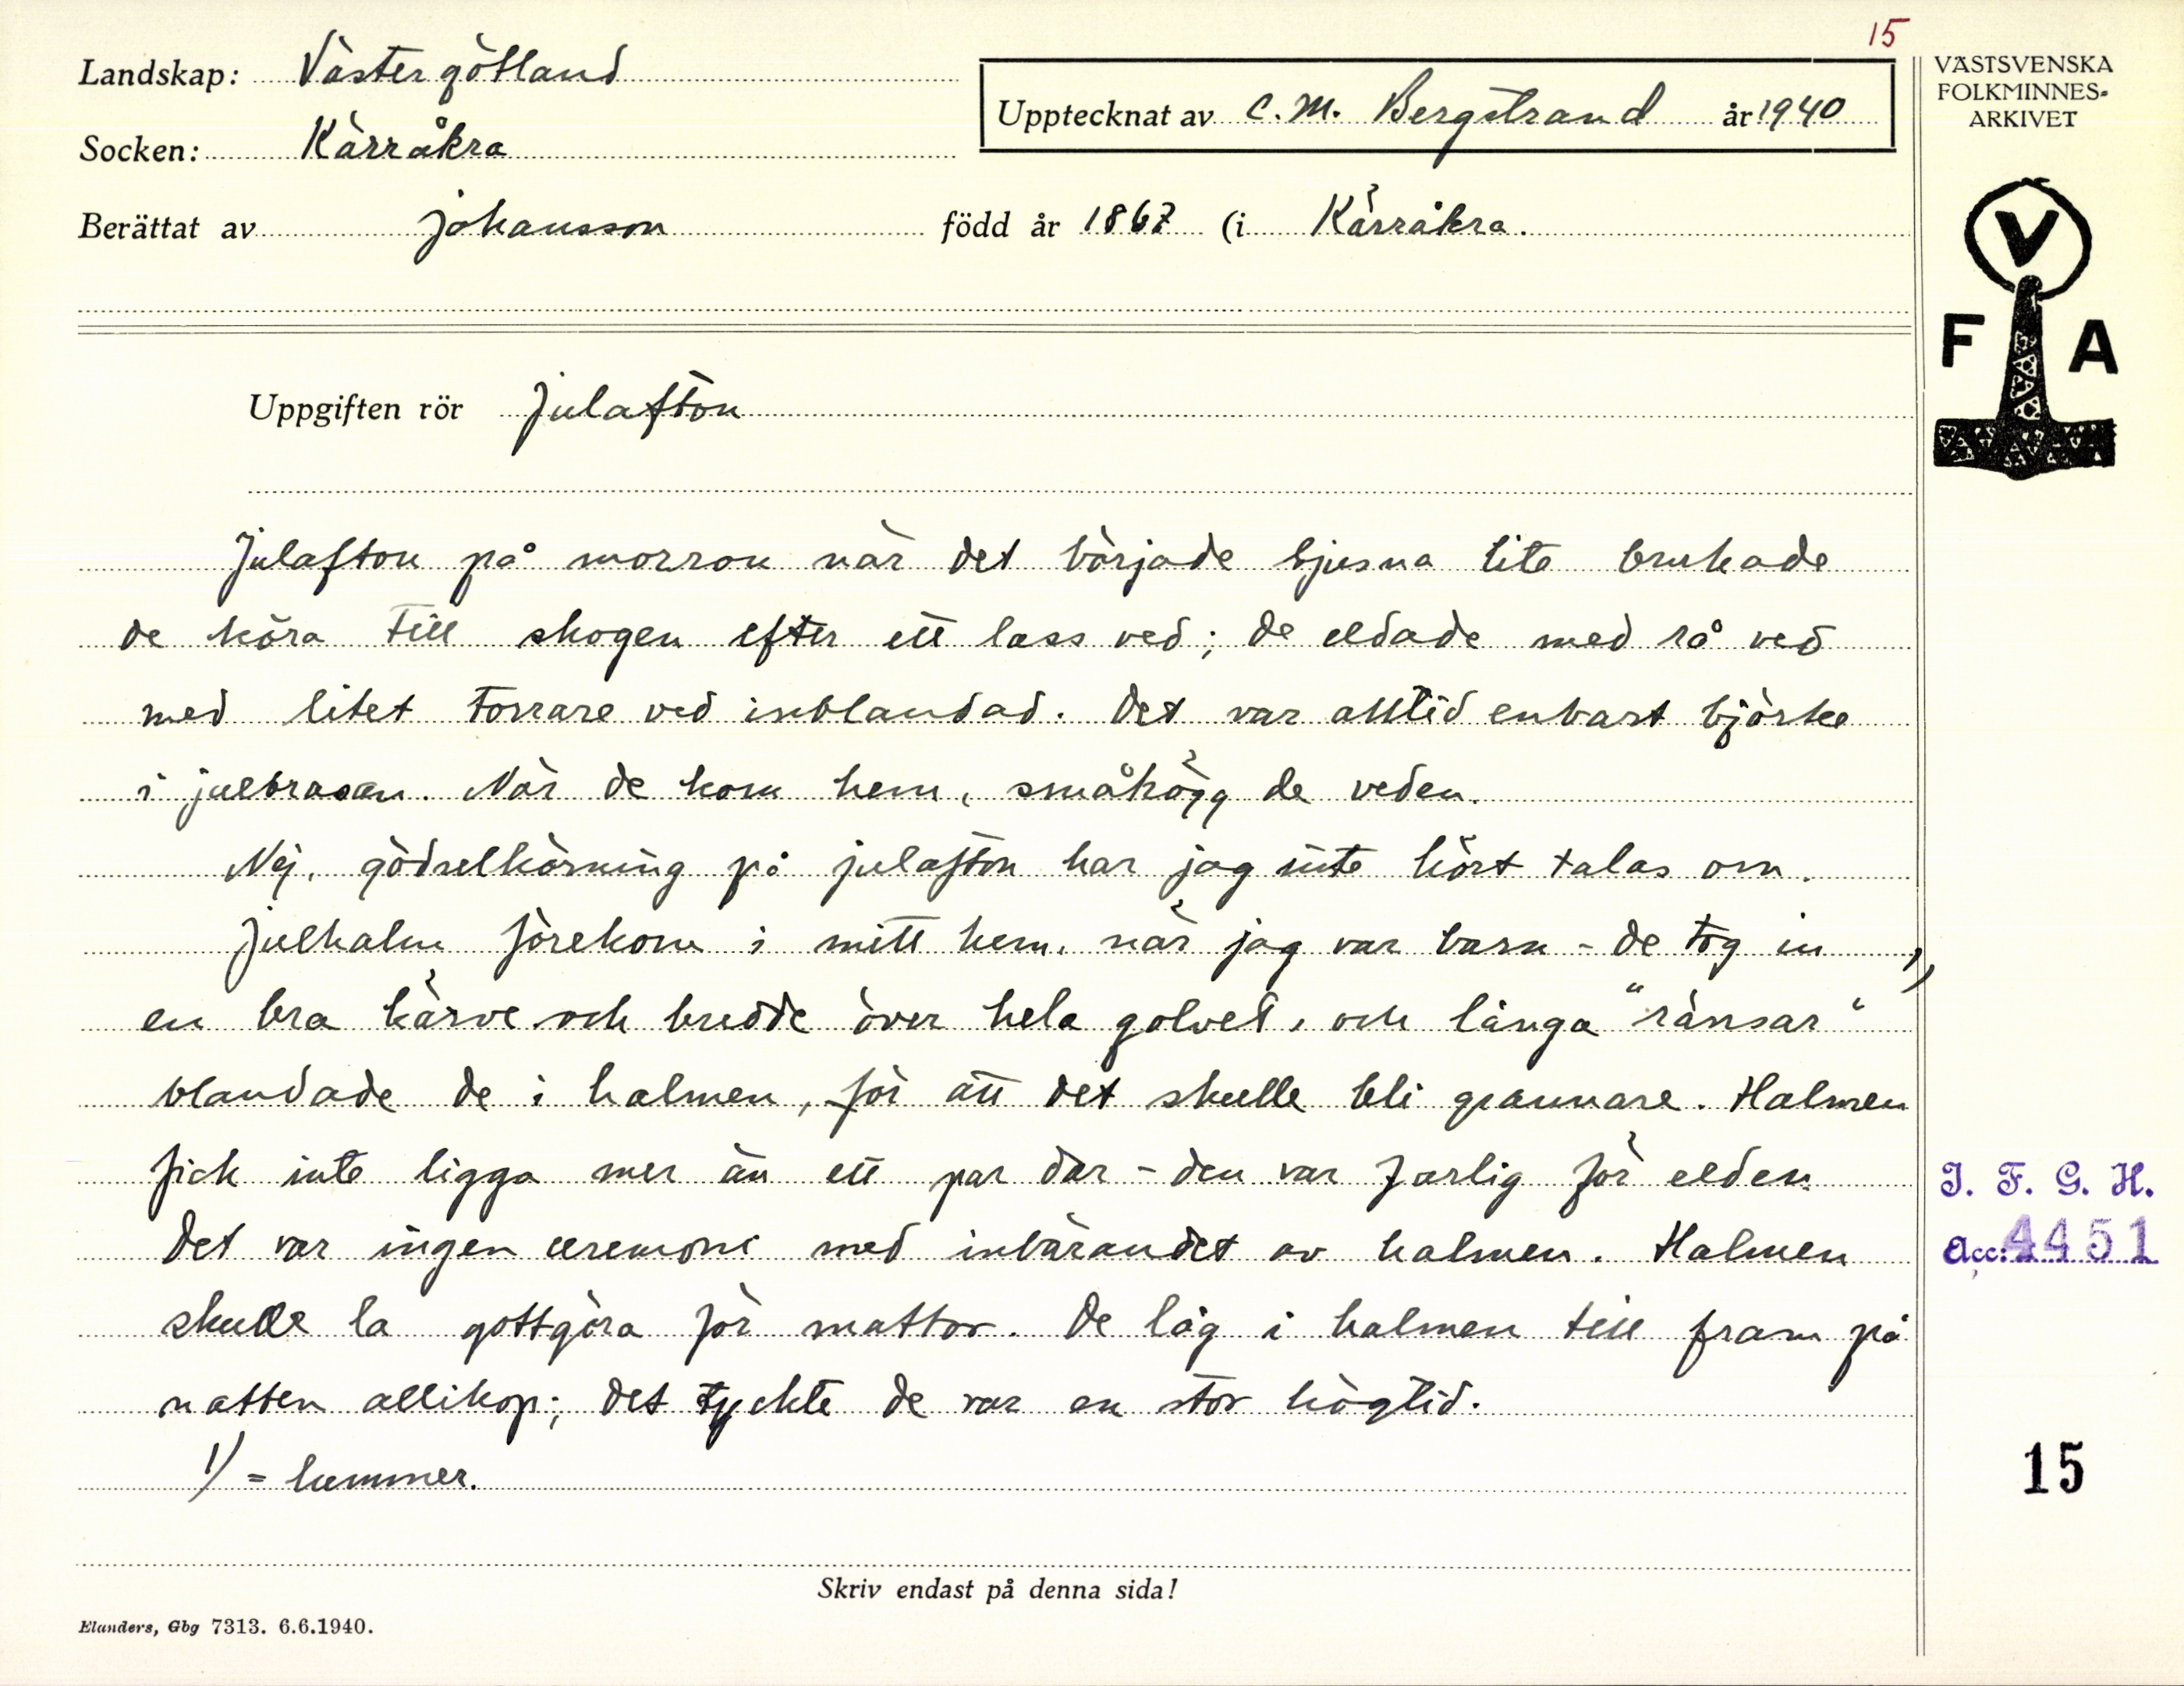 15
Landskap: Västergötland
Socken: Kärråkra
Upptecknat av C. M. Bergstrand år 1940
Berättat av Johansson född år 1867 (i Kärråkra.
VÄSTSVENSKA
FOLKMINNES-
ARKIVET
V
F A
Uppgiften rör Julafton
Julafton på morron när det började ljusna lite brukade
de köra till skogen efter ett lass ved; de eldade med rå ved
med litet torrare ved inblandad. Det var alltid enbart björke
i julbrasan. När de kom hem, småhögg de veden.
Nej, gödselkörning på julafton har jag inte hört talas om.
Julhalm förekom i mitt hem, när jag var barn - de tog in
en bra kärve och bredde över hela golvet, och långa "ränsar" 1)
blandade de i halmen, för att det skulle bli grannare. Halmen
fick inte ligga mer än ett par dar - den var farlig för elden.
Det var ingen ceremoni med inbärandet av halmen. Halmen
skulle la gottgöra för mattor. De låg i halmen till fram på
natten allihop; det tyckte de var en stor högtid.
1) = lummer.
I. F. G. H.
Acc: 4451
15
Skriv endast på denna sida!
Elanders, Gbg 7313. 6.6.1940.